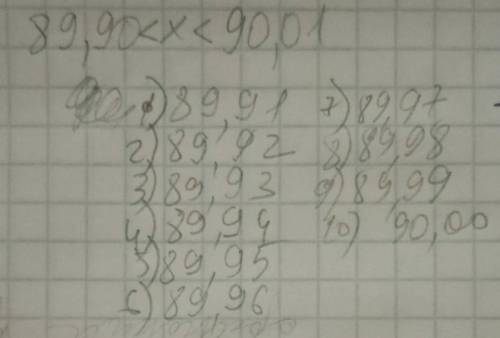 89,90<x<90,01
1) 89,91
2) 89,92
3) 89,93
4) 89,94
5) 89,95
6) 89,96
7) 89,97
8) 89,98
9) 89,99
10) 90,00